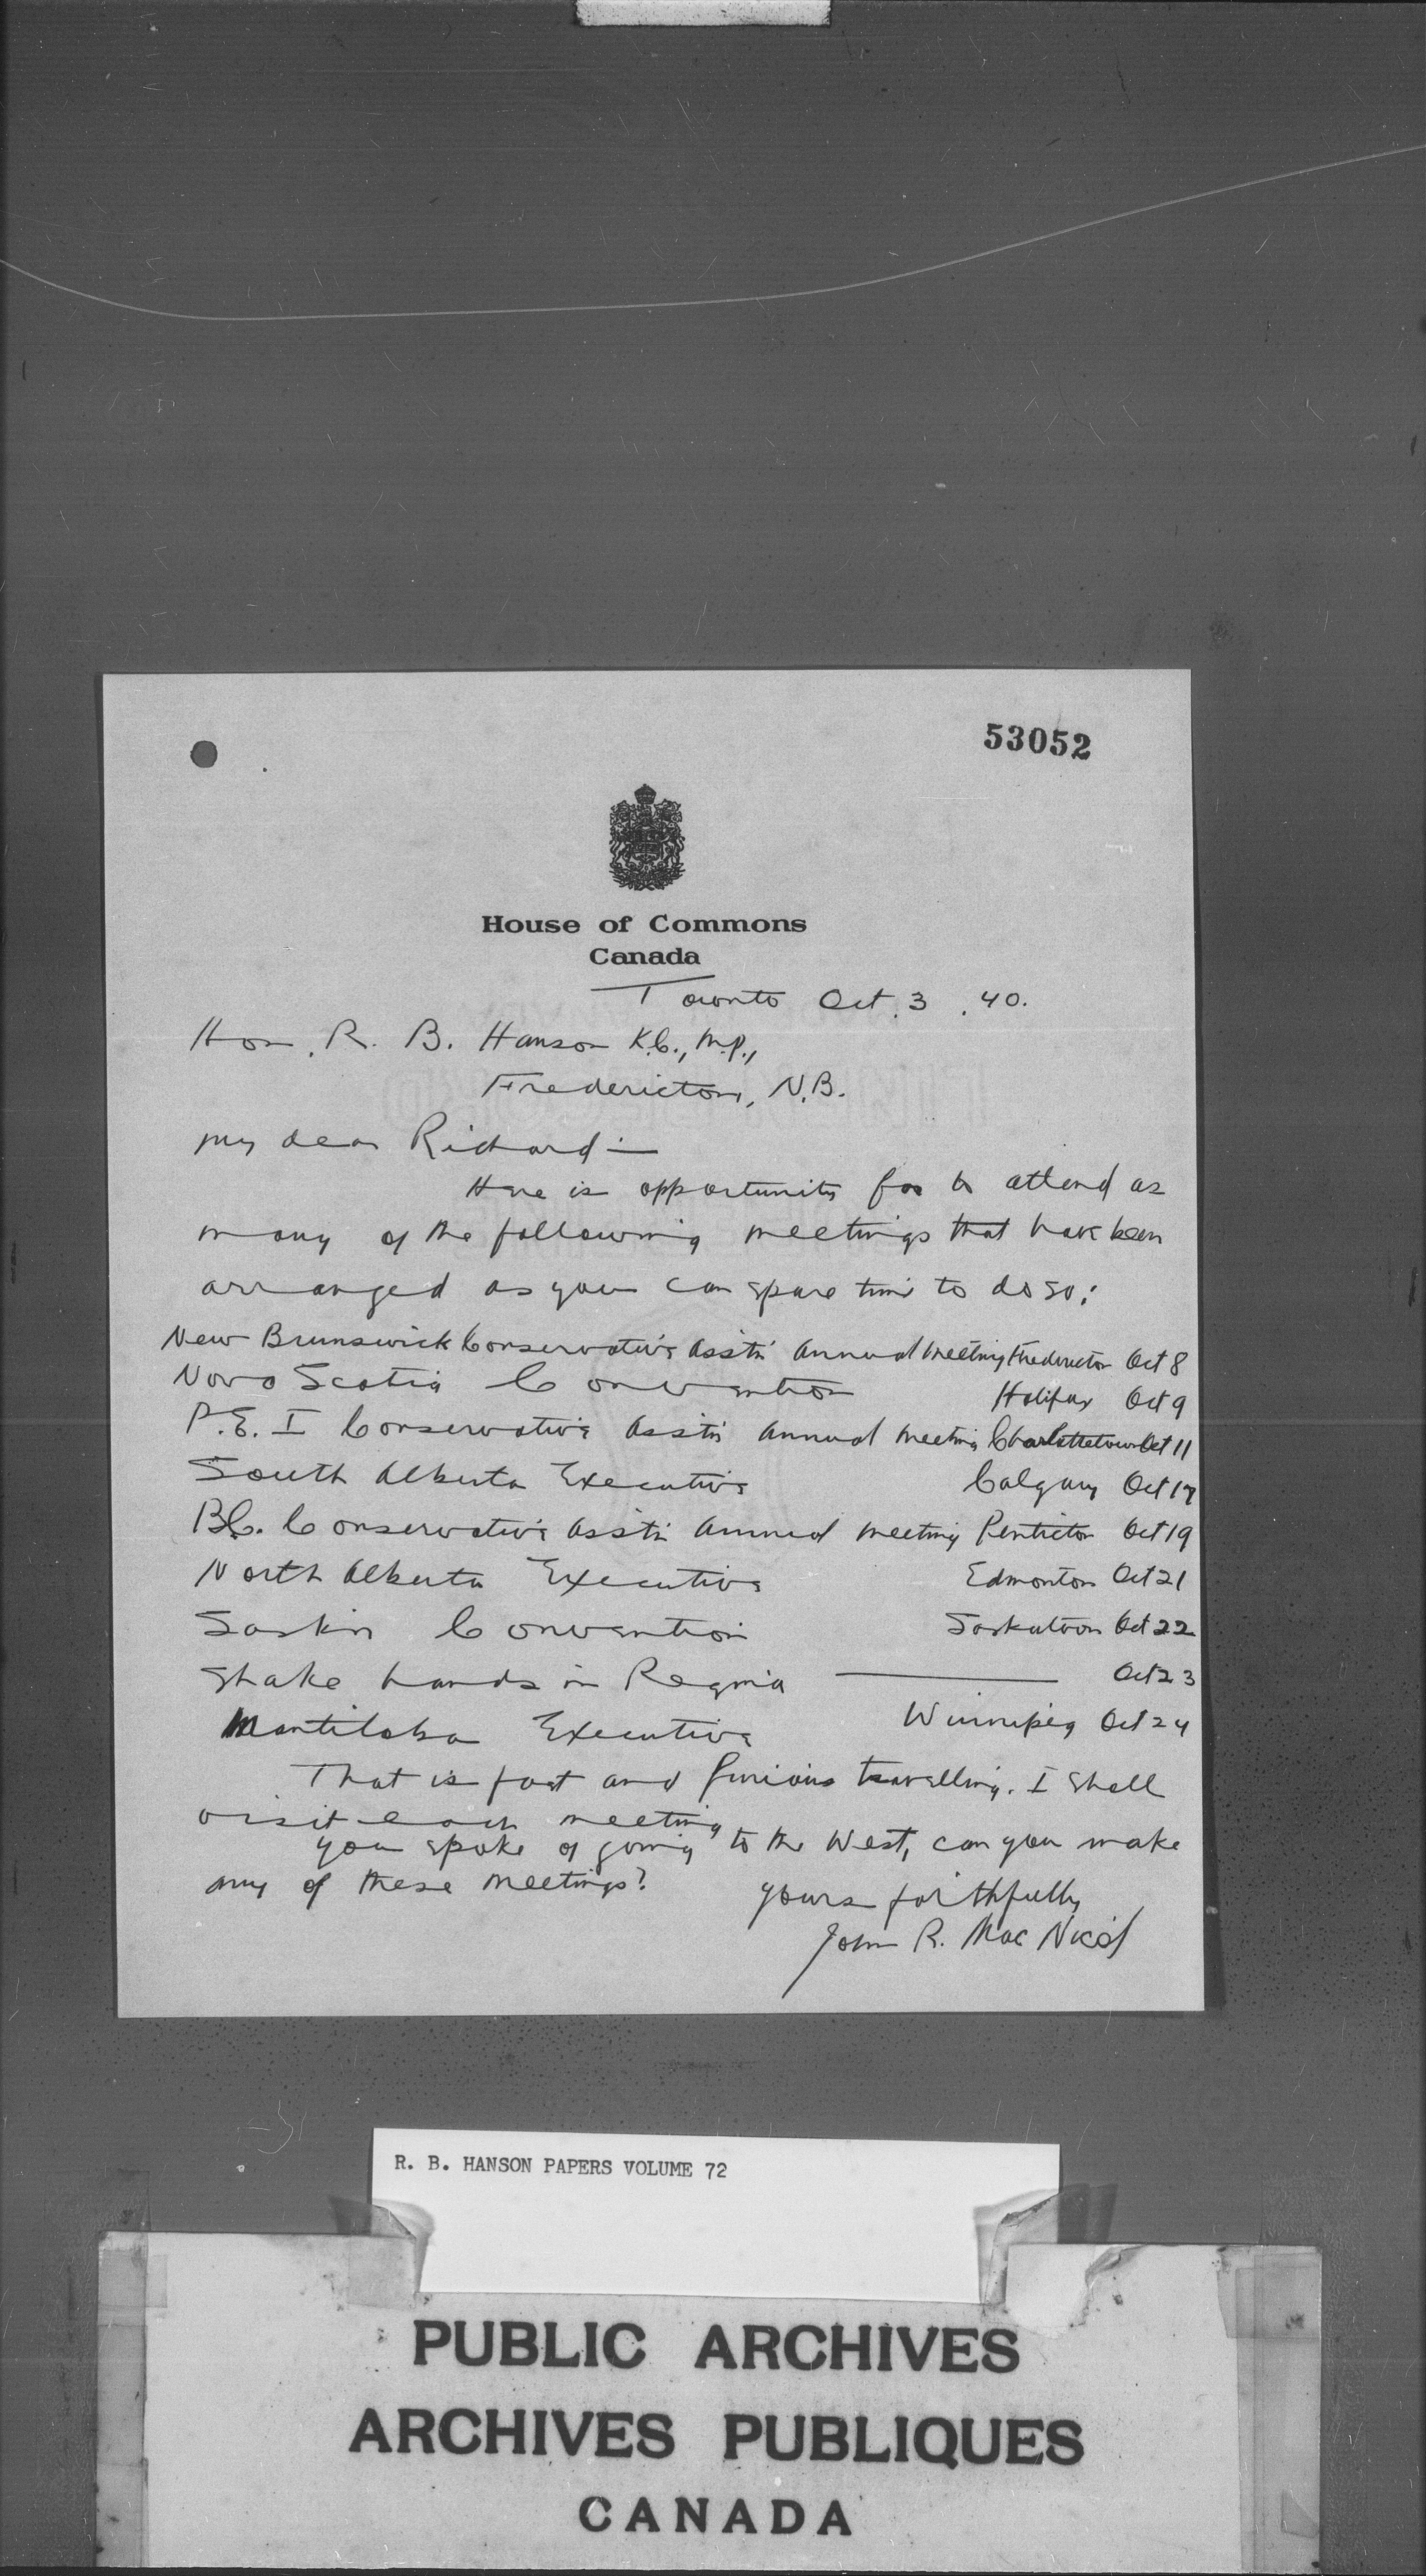 53052
House of Commons
Canada
Toronto Oct. 3. 40.
Hon. R. B. Hanson K.C., M.P.,
Fredericton, N.B.
My dear Richard:—
Here is opportunity for to attend as
many of the following meetings that have been
arranged as you can spare time to do so:
New Brunswick Conservative Ass'tn Annual Meeting Fredericton Oct 8
Nova Scotia Convention Halifax Oct 9
P.E.I Conservative Ass'tn Annual Meeting Charlottetown Oct 11
South Alberta Executive Calgary Oct 17
B.C. Conservative Ass'tn Annual Meeting Penticton Oct 19
North Alberta Executive Edmonton Oct 21
Sask'n Convention Saskatoon Oct 22
Shake hands in Regina ——— Oct 23
Manitoba Executive Winnipeg Oct 24
That is fast and furious travelling. I shall
visit each meeting
You spoke of going to the West, can you make
any of these meetings?
Yours faithfully
John R. MacNicol
R. B. HANSON PAPERS VOLUME 72
PUBLIC ARCHIVES
ARCHIVES PUBLIQUES
CANADA